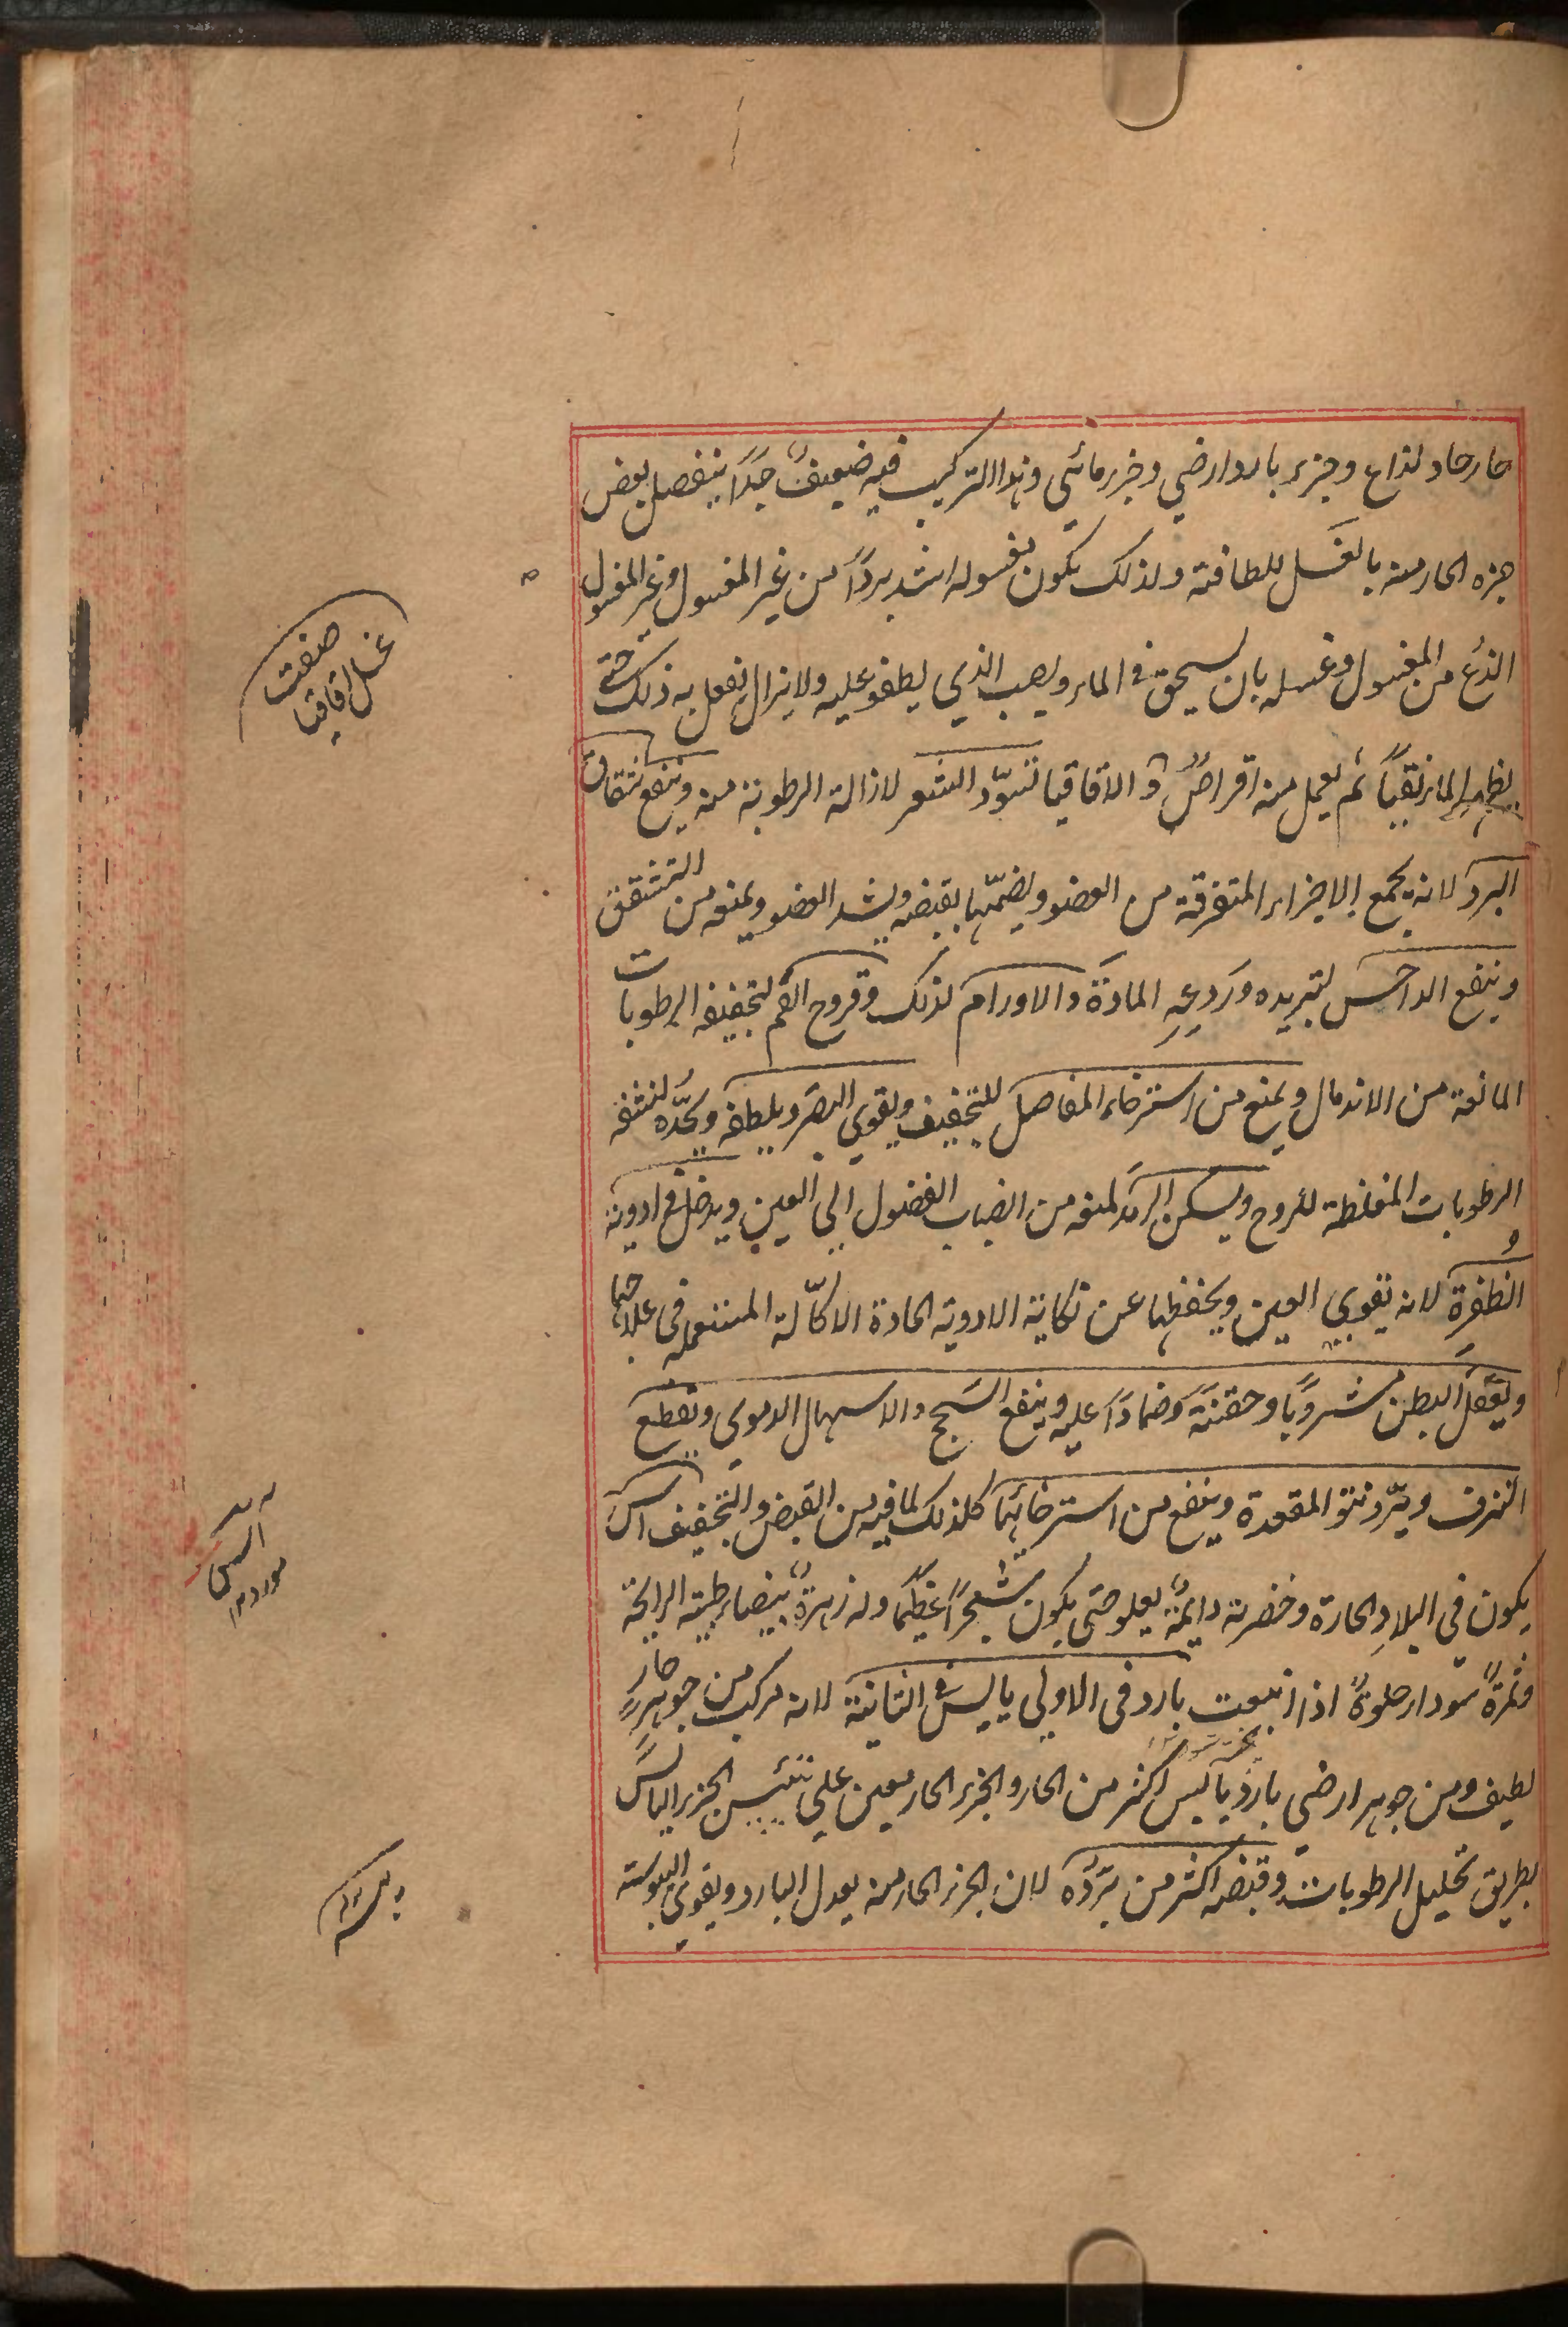 حار حاد لذاع وجزء بارد ارضي وجزء مائي وهذا التركيب فيه ضعيف جدًا ينفصل بعض
جزءه الحار منه بالغسل للطافته ولذلك يكون مغسوله اشد بردًا من غير المغسول وغير المغسول
الذع من المغسول وغسله بان يسحق في الماء ويصب الذي يطفو عليه ولا يزال يفعل به ذلك حتى
يظهر الماء نقيًا ثم يعمل منه اقراصٌ و الاقاقيا تسوّد الشعر لازالة الرطوبة منه وينفع شقاق
البرد لانه يجمع الاجزاء المتفرقة من العضو ويضمّها بقبضه ويشد العضو ويمنعه من التشقق
وينفع الداحس لتبريده وردعه المادة والاورام لذلك وقروح الفم لتجفيفه الرطوبات
المانعة من الاندمال ويمنع من استرخاء المفاصل للتجفيف ويقوي البصر ويلطفه ويحدّه لنشفه
الرطوبات المغلظة للروح ويسكن الرمد لمنعه من انصباب الفضول الى العين ويدخل في ادوية
الظفرة لانه يقوي العين ويحفظها عن نكاية الادوية الحادة الاكّالة المستعمله فى علاجها
ويعقل البطن مشروبًا وحقنةً وضمادًا عليه وينفع السحج والاسهال الدموي ويقطع
النزف ويردّ نتو المقعدة وينفع من استرخائها كل ذلك لما فيه من القبض والتجفيف اس
يكون في البلاد الحارة وخضرته دايمة يعلو حتى يكون شجرًا عظيمًا وله زهرةٌ بيضاء طيبة الرايحة
وثمرةٌ سوداء حلوةٌ اذا اينعت بارد فى الاولى يابس فى الثانية لانه مركب من جوهرٍ حارٍ
لطيف ومن جوهر ارضي باردٍ يابس اكثر من الحار والجزء الحار معين على تيبيس الجزء اليابس
بطريق تحليل الرطوبات وقبضه اكثر من بَرْده لان الجزء الحار منه يعدل البارد ويقوي اليبوسة
صفت
غسل اقاقيا
اس